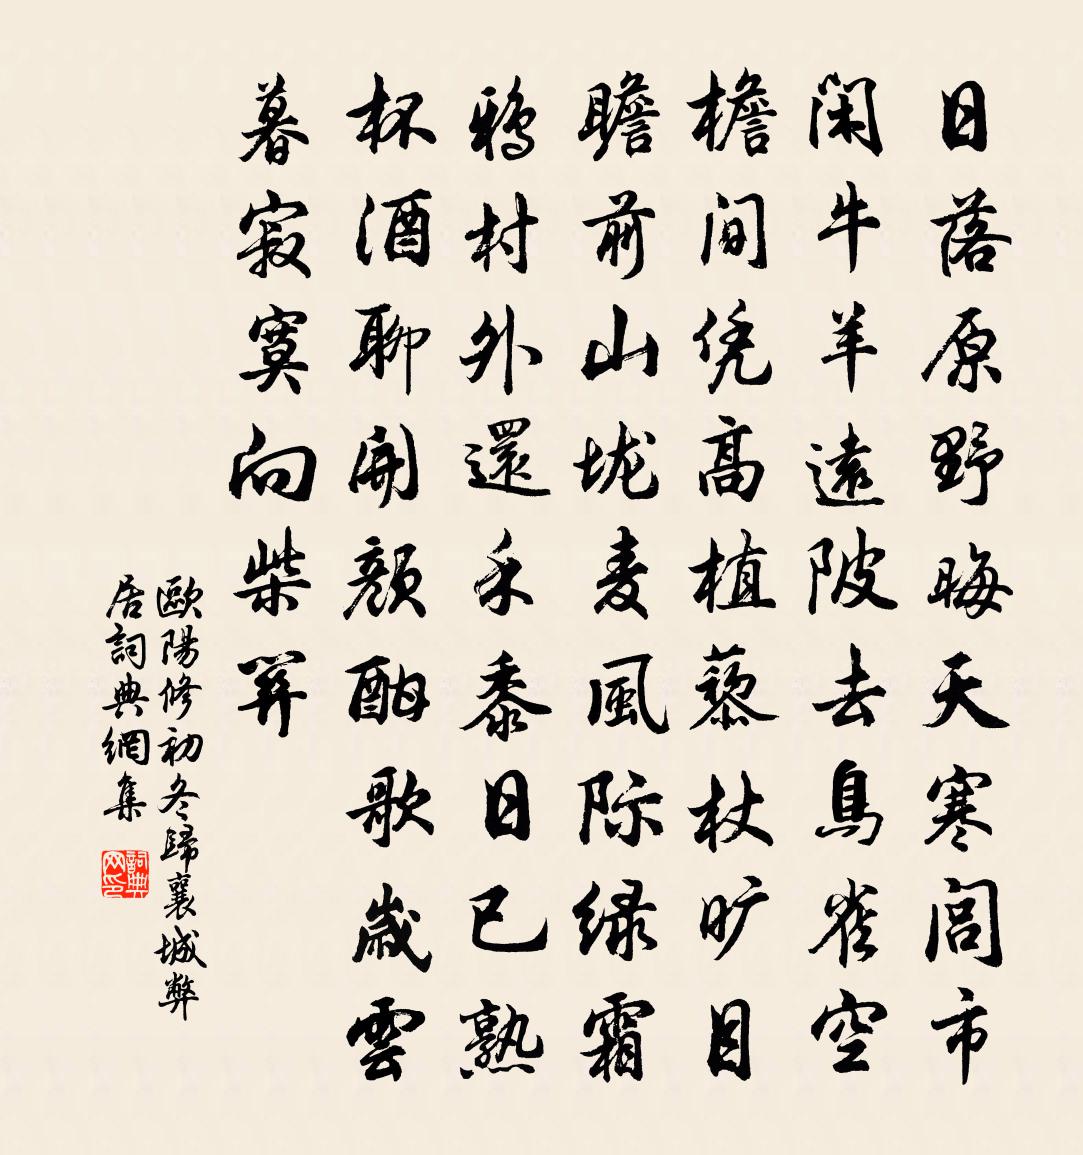 日落原野晦天寒閭市
閑牛羊遠陂去鳥雀空
檐間凭高植藜杖旷目
瞻前山垅麦風际绿霜
鴉村外還禾黍日已熟
杯酒聊開颜酣歌歲雲
暮寂寞向柴關
歐陽修初冬歸襄城弊
居詞典網集
詞典网印